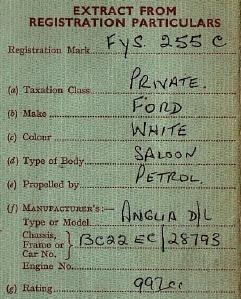 EXTRACT FROM
REGISTRATION PARTICULARS
Registration Mark FYS. 255 C
(a) Taxation Class PRIVATE.
(b) Make FORD
(c) Colour WHITE
(d) Type of Body SALOON
(e) Propelled by PETROL.
(f) MANUFACTURER'S:—
Type or Model ANGLIA D/L
Chassis,
Frame or } BC22 EC/28793
Car No.
Engine No.
(g) Rating 997cc